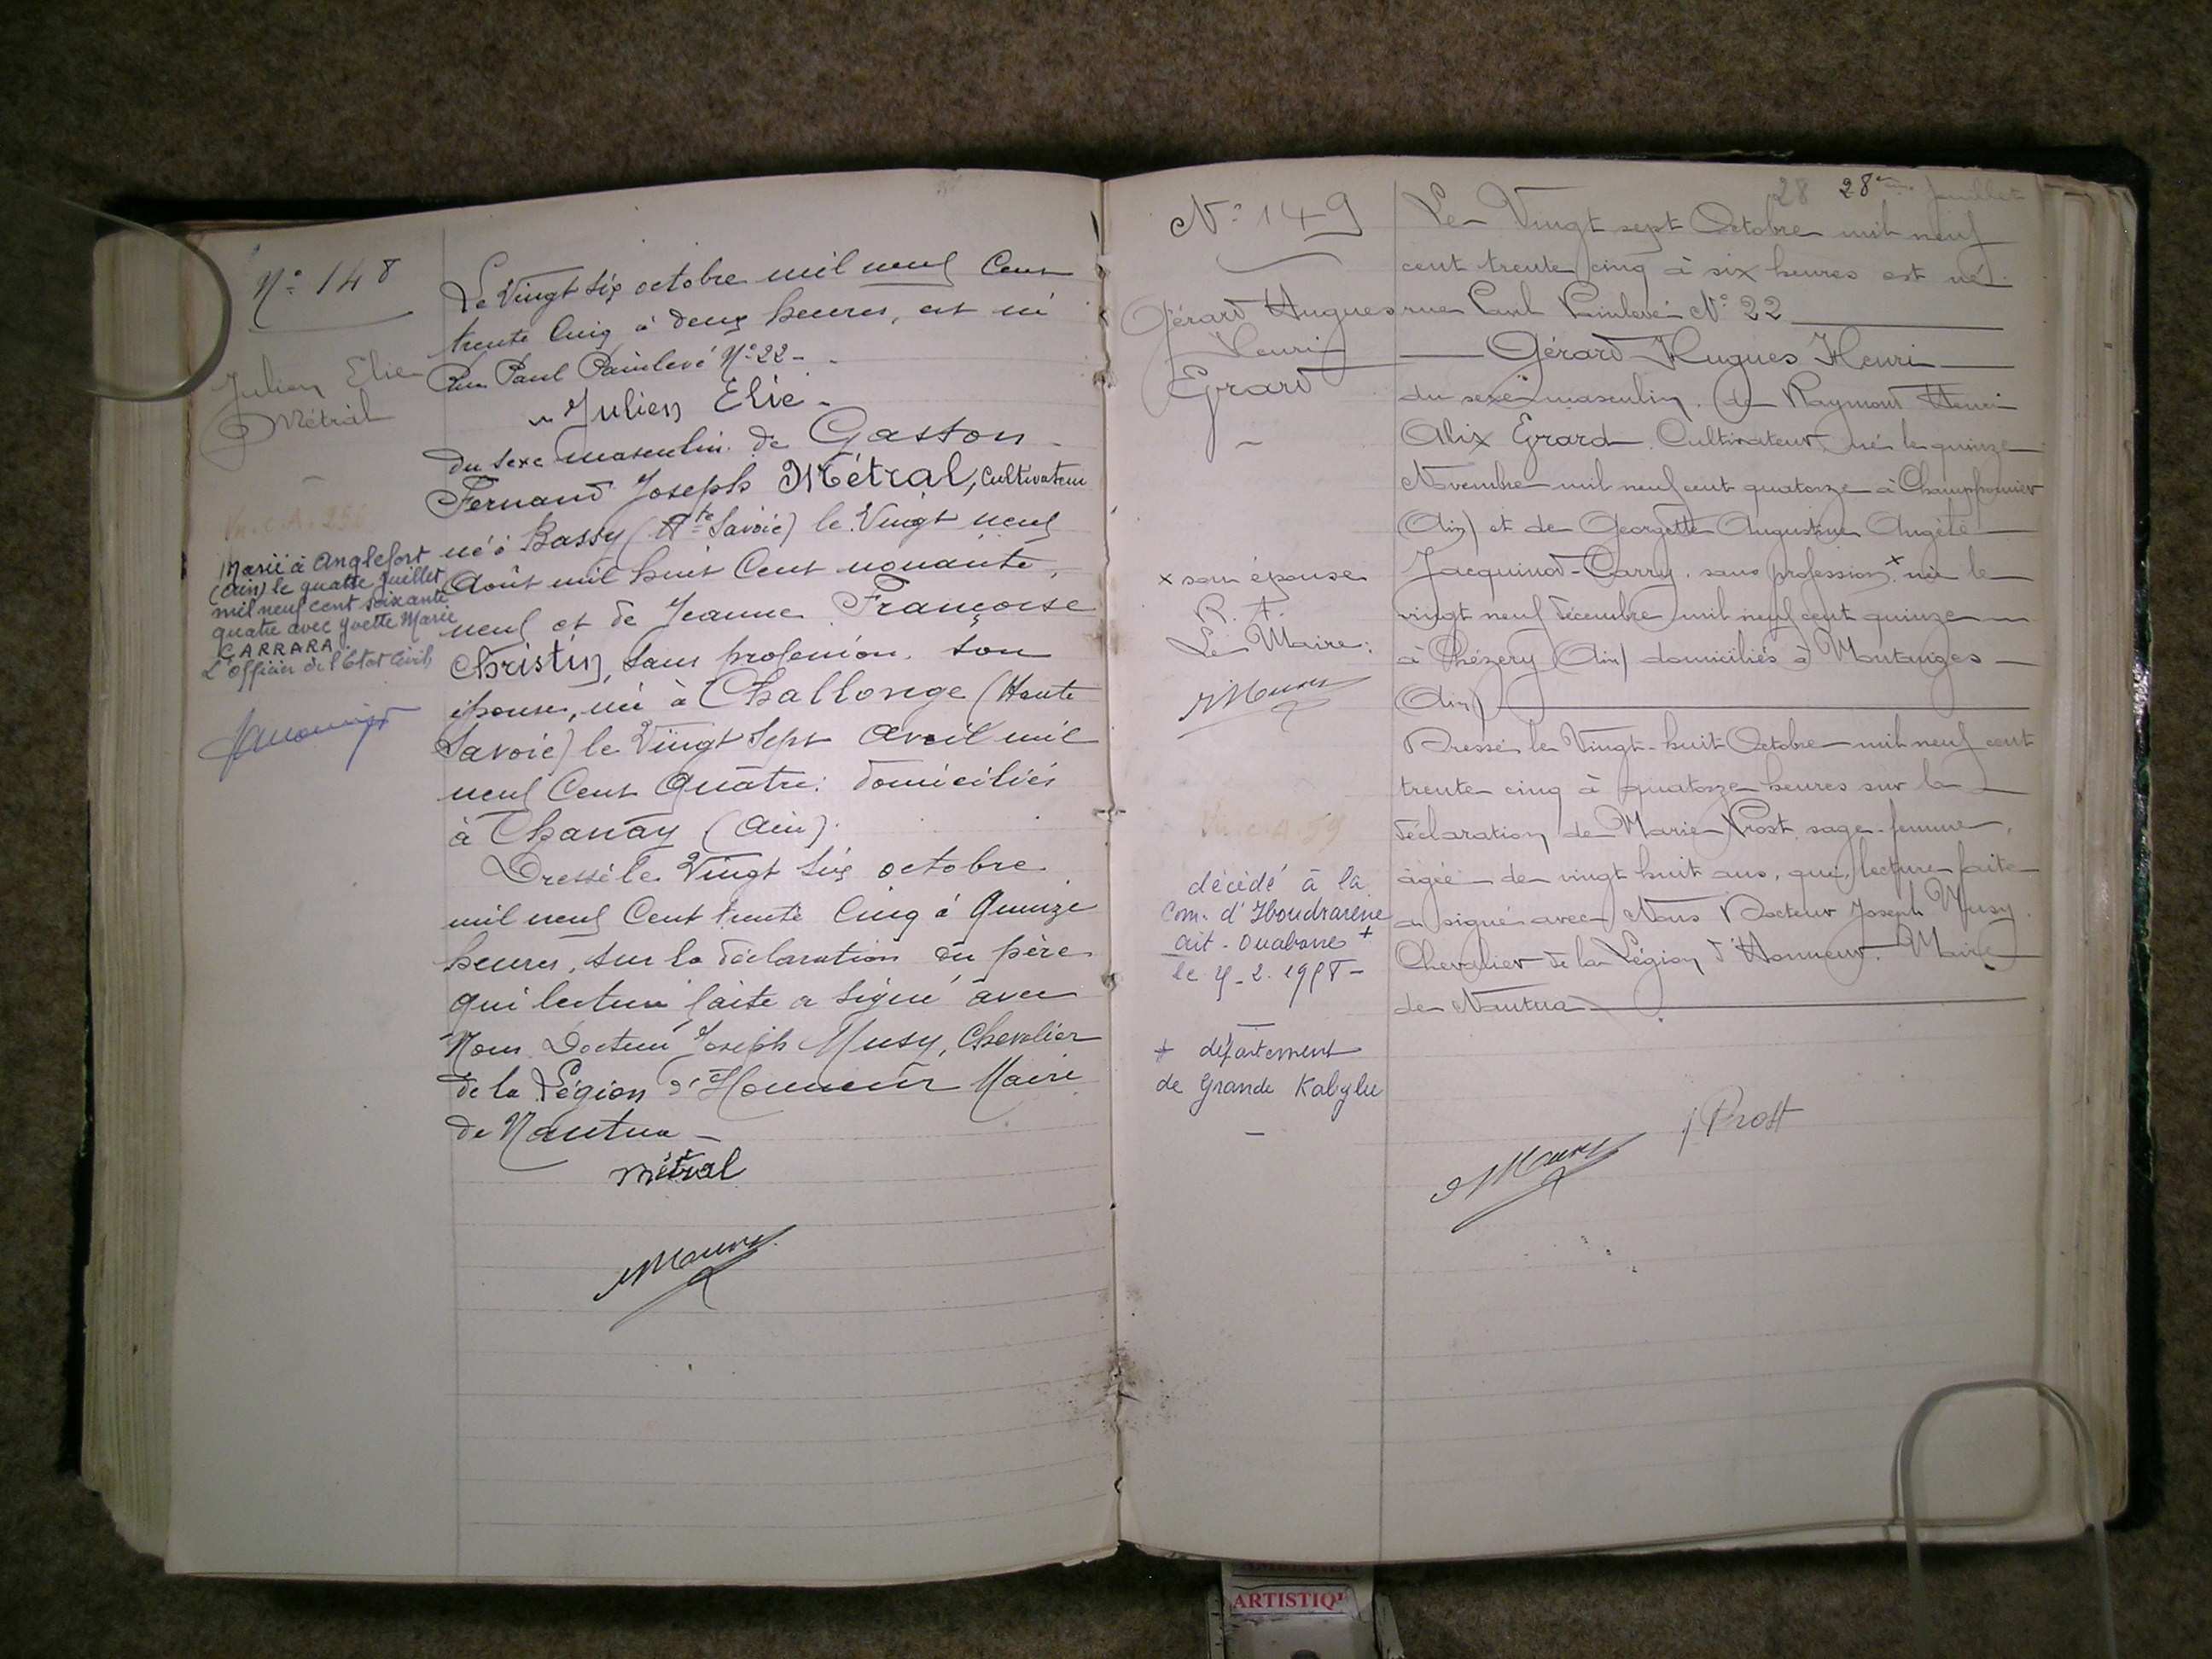 N° 148
Julien Elie
Métral
Marié à Anglefort
(Ain) le quatre Juillet
mil neuf cent soixante
quatre avec Yvette Marie
CARRARA.
L'Officier de l'Etat Civil,
Le Vingt six octobre mil neuf Cent
trente Cinq à deux heures, est né
Rue Paul Painlevé N° 22 -
Julien Elie -
du sexe masculin de Gaston
Fernand Joseph Métral, Cultivateur
né à Bassy (Hte Savoie) le Vingt neuf
Août mil huit Cent nonante
neuf et de Jeanne Françoise
Christin, sans profession son
épouse, née à Challonge (Haute
Savoie) le Vingt Sept Avril mil
neuf Cent Quatre : domiciliés
à Chanay (Ain).
Dressé le Vingt Six octobre
mil neuf Cent trente Cinq à Quinze
heures, sur la déclaration du père
qui lecture faite a signé avec
Nous Docteur Joseph Musy, Chevalier
de la Légion d'Honneur Maire
de Nantua -
Métral
28 28e feuillet
N° 149
Gérard Hugues
Henri
Erard
x son épouse
R. A.
Le Maire :
décédé à la
Com. d'Iboudrarène
ait - Ouabane +
le 4 - 2. 1958 -
+ département
de Grande Kabylie
Le Vingt sept Octobre mil neuf
cent trente cinq à six heures est né
rue Paul Painlevé N° 22
Gérard Hugues Henri
du sexe masculin. de Raymond Henri
Alix Erard Cultivateur, né le quinze
Novembre mil neuf cent quatorze à Champfromier
(Ain) et de Georgette Augustine Angèle
Jacquinod-Carry. sans profession x née le
vingt neuf Décembre mil neuf cent quinze
à Chézery (Ain) domiciliés à Montanges
(Ain)
Dressé le Vingt-huit Octobre mil neuf cent
trente cinq à quatorze heures sur la
déclaration de Marie Prost, sage-femme,
âgée de vingt huit ans, qui, lecture faite
a signé avec Nous Docteur Joseph Musy
Chevalier de la Légion d'Honneur. Maire
de Nantua
Prost
ARTISTIQ